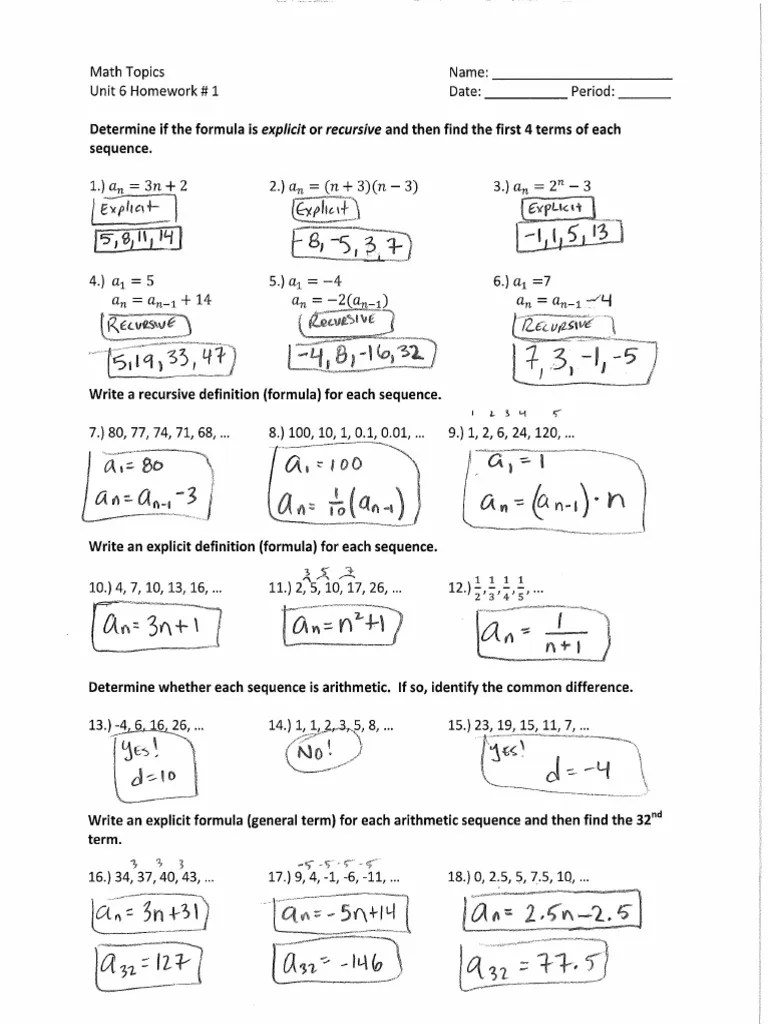 Math Topics Name: ____________________
Unit 6 Homework # 1 Date: __________ Period: _______
Determine if the formula is explicit or recursive and then find the first 4 terms of each
sequence.
1.) aₙ = 3n + 2 2.) aₙ = (n + 3)(n − 3) 3.) aₙ = 2ⁿ − 3
Explicit Explicit Explicit
5, 8, 11, 14 -8, -5, 3, 7 -1, 1, 5, 13
4.) a₁ = 5 5.) a₁ = −4 6.) a₁ =7
aₙ = aₙ₋₁ + 14 aₙ = −2(aₙ₋₁) aₙ = aₙ₋₁ − 4
RECURSIVE RECURSIVE RECURSIVE
5, 19, 33, 47 -4, 8, -16, 32 7, 3, -1, -5
Write a recursive definition (formula) for each sequence.
1 2 3 4 5
7.) 80, 77, 74, 71, 68, ... 8.) 100, 10, 1, 0.1, 0.01, ... 9.) 1, 2, 6, 24, 120, ...
a₁ = 80 a₁ = 100 a₁ = 1
aₙ = aₙ₋₁ - 3 aₙ = 1/10 (aₙ₋₁) aₙ = (aₙ₋₁) · n
Write an explicit definition (formula) for each sequence.
3 5 7
10.) 4, 7, 10, 13, 16, ... 11.) 2, 5, 10, 17, 26, ... 12.) 1/2, 1/3, 1/4, 1/5, ...
aₙ = 3n + 1 aₙ = n² + 1 aₙ = 1/(n + 1)
Determine whether each sequence is arithmetic. If so, identify the common difference.
13.) -4, 6, 16, 26, ... 14.) 1, 1, 2, 3, 5, 8, ... 15.) 23, 19, 15, 11, 7, ...
YES! NO! YES!
d = 10 d = -4
Write an explicit formula (general term) for each arithmetic sequence and then find the 32nd
term.
3 3 3 -5 -5 -5 -5
16.) 34, 37, 40, 43, ... 17.) 9, 4, -1, -6, -11, ... 18.) 0, 2.5, 5, 7.5, 10, ...
aₙ = 3n + 31 aₙ = -5n + 14 aₙ = 2.5n - 2.5
a₃₂ = 127 a₃₂ = -146 a₃₂ = 77.5